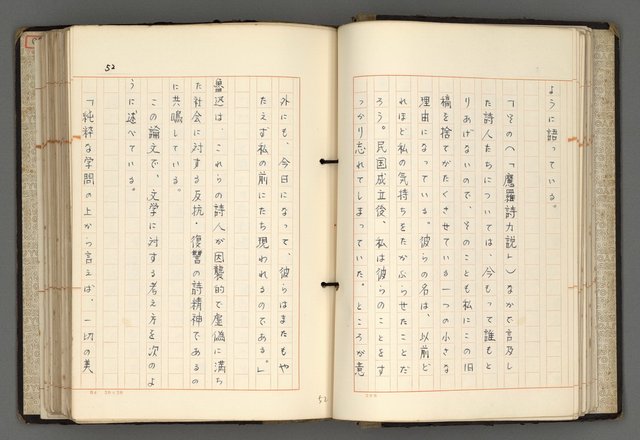 ように語っている。
「その(「魔羅詩力説」)なかで言及し
た詩人たちについては、今もって誰もと
りあげないので、そのことも私にこの旧
稿を捨てがたくさせている一つの小さな
理由になっている。彼らの名は、以前ど
れほど私の気持ちをたかぶらせたことだ
ろう。民国成立後、私は彼らのことをす
っかり忘れてしまっていた。ところが意
52
外にも、今日になって、彼らはまたもや
たえず私の前にたち現われるのである。」
魯迅は、これらの詩人が因襲的で虚偽に満ち
た社会に対する反抗、復讐の詩精神であるの
に共鳴している。
この論文で、文学に対する考え方を次のよ
うに述べている。
「純粋な学問の上から言えば、一切の美
52